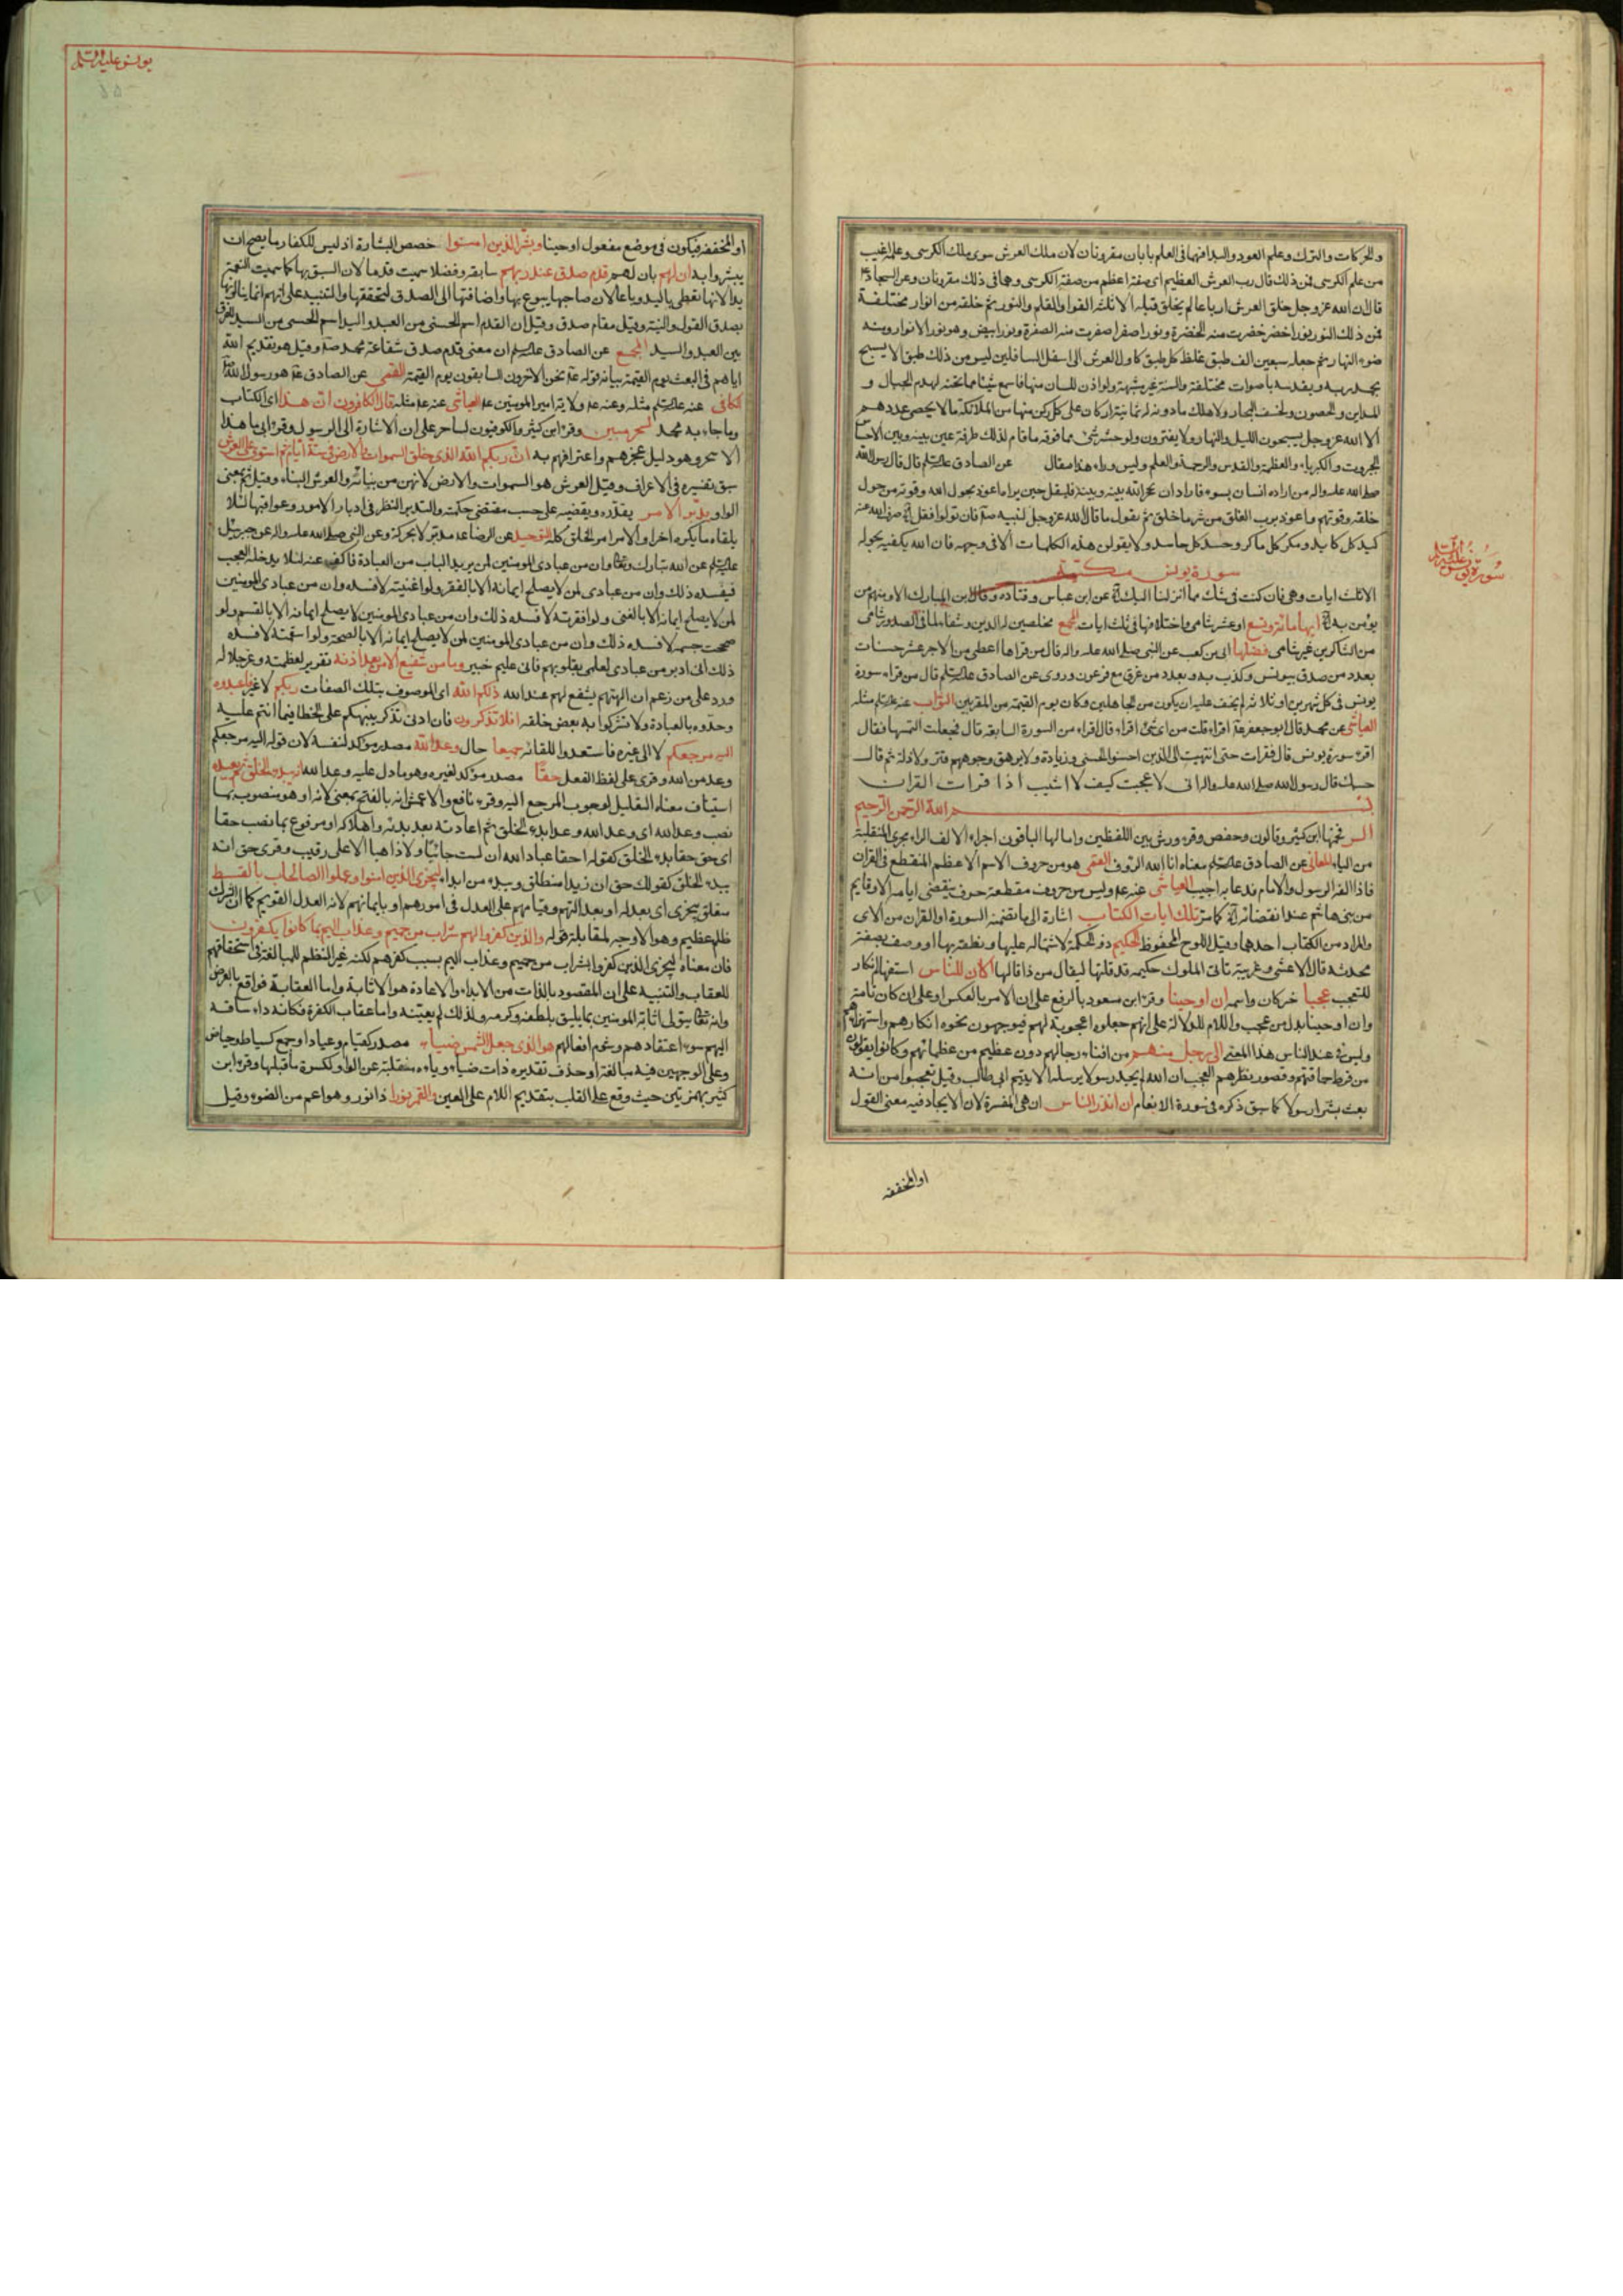 والحركات والترك وعلم العود والبدا فهما فى العلم بابان مقرونان لان ملك العرش سوى ملك الكرسى وعلمه اغيب
من علم الكرسى فمن ذلك قال رب العرش العظيم اى صفته اعظم من صفة الكرسى وهما فى ذلك مقرونان وعن السجاد ع
قال ان الله عز وجل خلق العرش ارباعا لم يخلق قبله الا ثلثة الهواء والقلم والنور ثم خلقه من انوار مختلفة
فمن ذلك النور نور اخضر خضرت منه الخضرة ونور اصفر اصفرت منه الصفرة ونور ابيض وهو نور الانوار ومنه
ضوء النهار ثم جعله سبعين الف طبق غلظ كل طبق كاول العرش الى اسفل السافلين ليس من ذلك طبق الا يسبح
بحمد ربه ويقدسه باصوات مختلفة والسنة غير مشبهة ولو اذن للسان منها فاسمع شيئا مما تحته لهدم الجبال و
المداين والحصون ولخسف البحار ولاهلك ما دونه له ثمانية اركان على كل ركن منها من الملائكة ما لا يحصى عددهم
الا الله عز وجل يسبحون الليل والنهار ولا يفترون ولو حس شىء مما فوقه ما قام لذلك طرفة عين بينه وبين الاحساس
الجبروت والكبرياء والعظمة والقدس والرحمة والعلم وليس وراء هذا مقال عن الصادق عليه السلم قال قال رسول الله
صلى الله عليه واله من اراده انسان بسوء فاراد ان يحجز الله بينه وبينه فليقل حين يراه اعوذ بحول الله وقوته من حول
خلقه وقوتهم واعوذ برب الفلق من شر ما خلق ثم يقول ما قال الله عز وجل لنبيه صلم فان تولوا فقل الاية صرف الله عنه
كيد كل كايد ومكر كل ماكر وحسد كل حاسد ولا يقولن هذه الكلمات الا فى وجهه فان الله يكفيه بحوله
سورة يونس مكية
الا ثلث ايات وهى فان كنت فى شك مما انزلنا اليك الاية عن ابن عباس وقتاده وقال ابن المبارك الا ومنهم من
يؤمن به الاية ايها مائة وتسع او عشر شامى واختلافها فى ثلث ايات المجمع مخلصين له الدين وشفاء لما فى الصدور شامى
من الشاكرين غير شامى فضلها ابى بن كعب عن النبى صلى الله عليه واله قال من قراها اعطى من الاجر عشر حسنات
بعدد من صدق بيونس وكذب به وبعدد من غرق مع فرعون وروى عن الصادق عليه السلم قال من قراء سورة
يونس فى كل شهرين او ثلاثة لم يخف عليه ان يكون من الجاهلين وكان يوم القيمة من المقربين الثواب عنه عليه السلم مثله
العياشى عن محمد قال ابو جعفر ع اقراء قلت من اى شئ اقراء قال اقراء من السورة السابقه قال فجعلت التمسها فقال
اقرء سورة يونس قال فقرات حتى انتهيت الى للذين احسنوا الحسنى وزيادة ولا يرهق وجوههم قتر ولا ذلة ثم قال
حسبك قال رسول الله صلى الله عليه واله انى لاعجب كيف لا اشيب اذا قرات القران
بسم الله الرحمن الرحيم
الر فخمها ابن كثير وقالون وحفص وقرء ورش بين اللفظين وامالها الباقون اجراء لالف الراء مجرى المنقلبة
من الياء المعانى عن الصادق عليه السلم معناه انا الله الرؤف القمى هو من حروف الاسم الاعظم المنقطع فى القران
فاذا الفه الرسول والامام فدعا به اجيب العياشى عنه ع وليس من حروف مقطعة حرف ينقضى ايامه الا وقايم
من بنى هاشم عند انقضائه الاية كما مر تلك ايات الكتاب اشارة الى ما تضمنه السورة او القران من الاى
والمراد من الكتاب احدهما وقيل اللوح المحفوظ الحكيم ذو الحكمة لاشتماله عليها ونطقه بها او وصف بصفة
محدثه قال الاعشى وغريبة تاتى الملوك حكيمه قد قلتها ليقال من ذا قالها اكان للناس استفهام انكار
للتعجب عجبا خبر كان واسمه ان اوحينا وقرء ابن مسعود بالرفع على ان الامر بالعكس او على ان كان تامة
وان اوحينا بدل من عجب واللام للدلالة على انهم جعلوه اعجوبة لهم فيوجهون نحوه انكارهم واستهزاءهم
وليس فى عند الناس هذا المعنى الى رجل منهم من افناء رجالهم دون عظيم من عظمائهم وكانوا يقولون
من فرط حماقتهم وقصور نظرهم العجب ان الله لم يجد رسولا يرسله الا يتيم ابى طالب وقيل تعجبوا من انه
بعث بشرا رسولا كما سبق ذكره فى سورة الانعام ان انذر الناس ان هى المفسرة لان الايحاء فيه معنى القول
او المخففه
سورة يونس عليه السلم
يونس عليه السلم
او المخففة فيكون فى موضع مفعول اوحينا وبشر الذين امنوا خصص البشارة اذ ليس للكفار ما يصح ان
يبشروا به ان لهم بان لهم قدم صدق عند ربهم سابقة وفضلا سميت قدما لان السبق بها كما سميت النعمة
يدا لانها تعطى باليد وباعا لان صاحبها يبوع بها واضافتها الى الصدق لتحققها والتنبيه على انهم انما ينالونها
بصدق القول والنية وقيل مقام صدق وقيل ان القدم اسم للحسنى من العبد واليد اسم للحسنى من السيد للفرق
بين العبد والسيد المجمع عن الصادق عليه السلم ان معنى قدم صدق شفاعة محمد صلم وقيل هو تقديم الله
اياهم فى البعث يوم القيمة بيانه قوله ع نحن الاخرون السابقون يوم القيمة القمى عن الصادق ع هو رسول الله
الكافى عنه عليه السلم مثله وعنه ع ولاية امير المومنين ع العياشى عنه ع مثله قال الكافرون ان هذا اى الكتاب
وما جاء به محمد لسحر مبين وقرء ابن كثير والكوفيون لساحر على ان الاشارة الى الرسول وقرء ابى ما هذا
الا سحر وهو دليل عجزهم واعترافهم به ان ربكم الله الذى خلق السموات والارض فى ستة ايام ثم استوى على العرش
سبق تفسيره فى الاعراف وقيل العرش هو السموات والارض لانهن من بنيانه والعرش البناء وقيل ثم بمعنى
الواو يدبر الامر يقدره ويقضيه على حسب مقتضى حكمته والتدبير النظر فى ادبار الامور وعواقبها لئلا
يلقاه ما يكره اخرا والامر امر الخلق كله التوحيد عن الرضا ع مدبر لا بحركة وعن النبى صلى الله عليه واله عن جبرئيل
عليه السلم عن الله تبارك وتعالى وان من عبادى المومنين لمن يريد الباب من العبادة فاكفه عنه لئلا يدخله العجب
فيفسده ذلك وان من عبادى لمن لا يصلح ايمانه الا بالفقر ولو اغنيته لافسده وان من عبادى المومنين
لمن لا يصلح ايمانه الا بالغنى ولو افقرته لافسده ذلك وان من عبادى المومنين لا يصلح ايمانه الا بالسقم ولو
صححت جسمه لافسده ذلك وان من عبادى المومنين لمن لا يصلح ايمانه الا بالصحة ولو اسقمته لافسده
ذلك انى ادبر من عبادى لعلمى بقلوبهم فانى عليم خبير وما من شفيع الا من بعد اذنه تقرير لعظمته وعز جلاله
ورد على من زعم ان الهتهم يشفع لهم عند الله ذلكم الله اى الموصوف بتلك الصفات ربكم لا غير فاعبدوه
وحدوه بالعبادة ولا تشركوا به بعض خلقه افلا تذكرون فان ادنى تذكر ينبهكم على الخطا فيما انتم عليه
اليه مرجعكم لا الى غيره فاستعدوا للقائه جميعا حال وعد الله مصدر مؤكد لنفسه لان قوله اليه مرجعكم
وعد من الله وقرى على لفظ الفعل حقا مصدر مؤكد لغيره وهو ما دل عليه وعد الله انه يبدؤ الخلق ثم يعيده
استيناف معناه التعليل لوجوب المرجع اليه وقرء نافع والاعمش انه بالفتح بمعنى لانه او هو منصوب بما
نصب وعد الله اى وعد الله وعدا بدء الخلق ثم اعادته بعد بدئه واهلاكه او مرفوع بما نصب حقا
اى حق حقا بدء الخلق كقوله احقا عباد الله ان لست جائيا ولا ذاهبا الا على رقيب وقرى حق انه
يبدء الخلق كقولك حق ان زيدا منطلق ويبدء من ابداء ليجزى الذين امنوا وعملوا الصالحات بالقسط
متعلق بيجزى اى بعدله او بعدالتهم وقيامهم على العدل فى امورهم او بايمانهم لانه العدل القويم كما ان الشرك
ظلم عظيم وهو الاوجه لمقابلة قوله والذين كفروا لهم شراب من حميم وعذاب اليم بما كانوا يكفرون
فان معناه ليجزى الذين كفروا بشراب من حميم وعذاب اليم بسبب كفرهم لكنه غير النظم للمبالغة فى استحقاقهم
للعقاب والتنبيه على ان المقصود بالذات من الابداء والاعادة هو الاثابة واما العقاب فواقع بالعرض
وانه تعالى يتولى اثابة المومنين بما يليق بلطفه وكرمه ولذلك لم يعينه واما عقاب الكفرة فكانه داء ساقه
اليهم سوء اعتقادهم وشوم افعالهم هو الذى جعل الشمس ضياء مصدر كقيام وعياد او جمع كسياط وحياض
وعلى الوجهين فيه مبالغة او حذف تقديره ذات ضياء وياءه منقلبة عن الواو لكسرة ما قبلها وقرء ابن
كثير بهمزتين حيث وقع على القلب بتقديم اللام على العين والقمر نورا ذا نور وهو اعم من الضوء وقيل